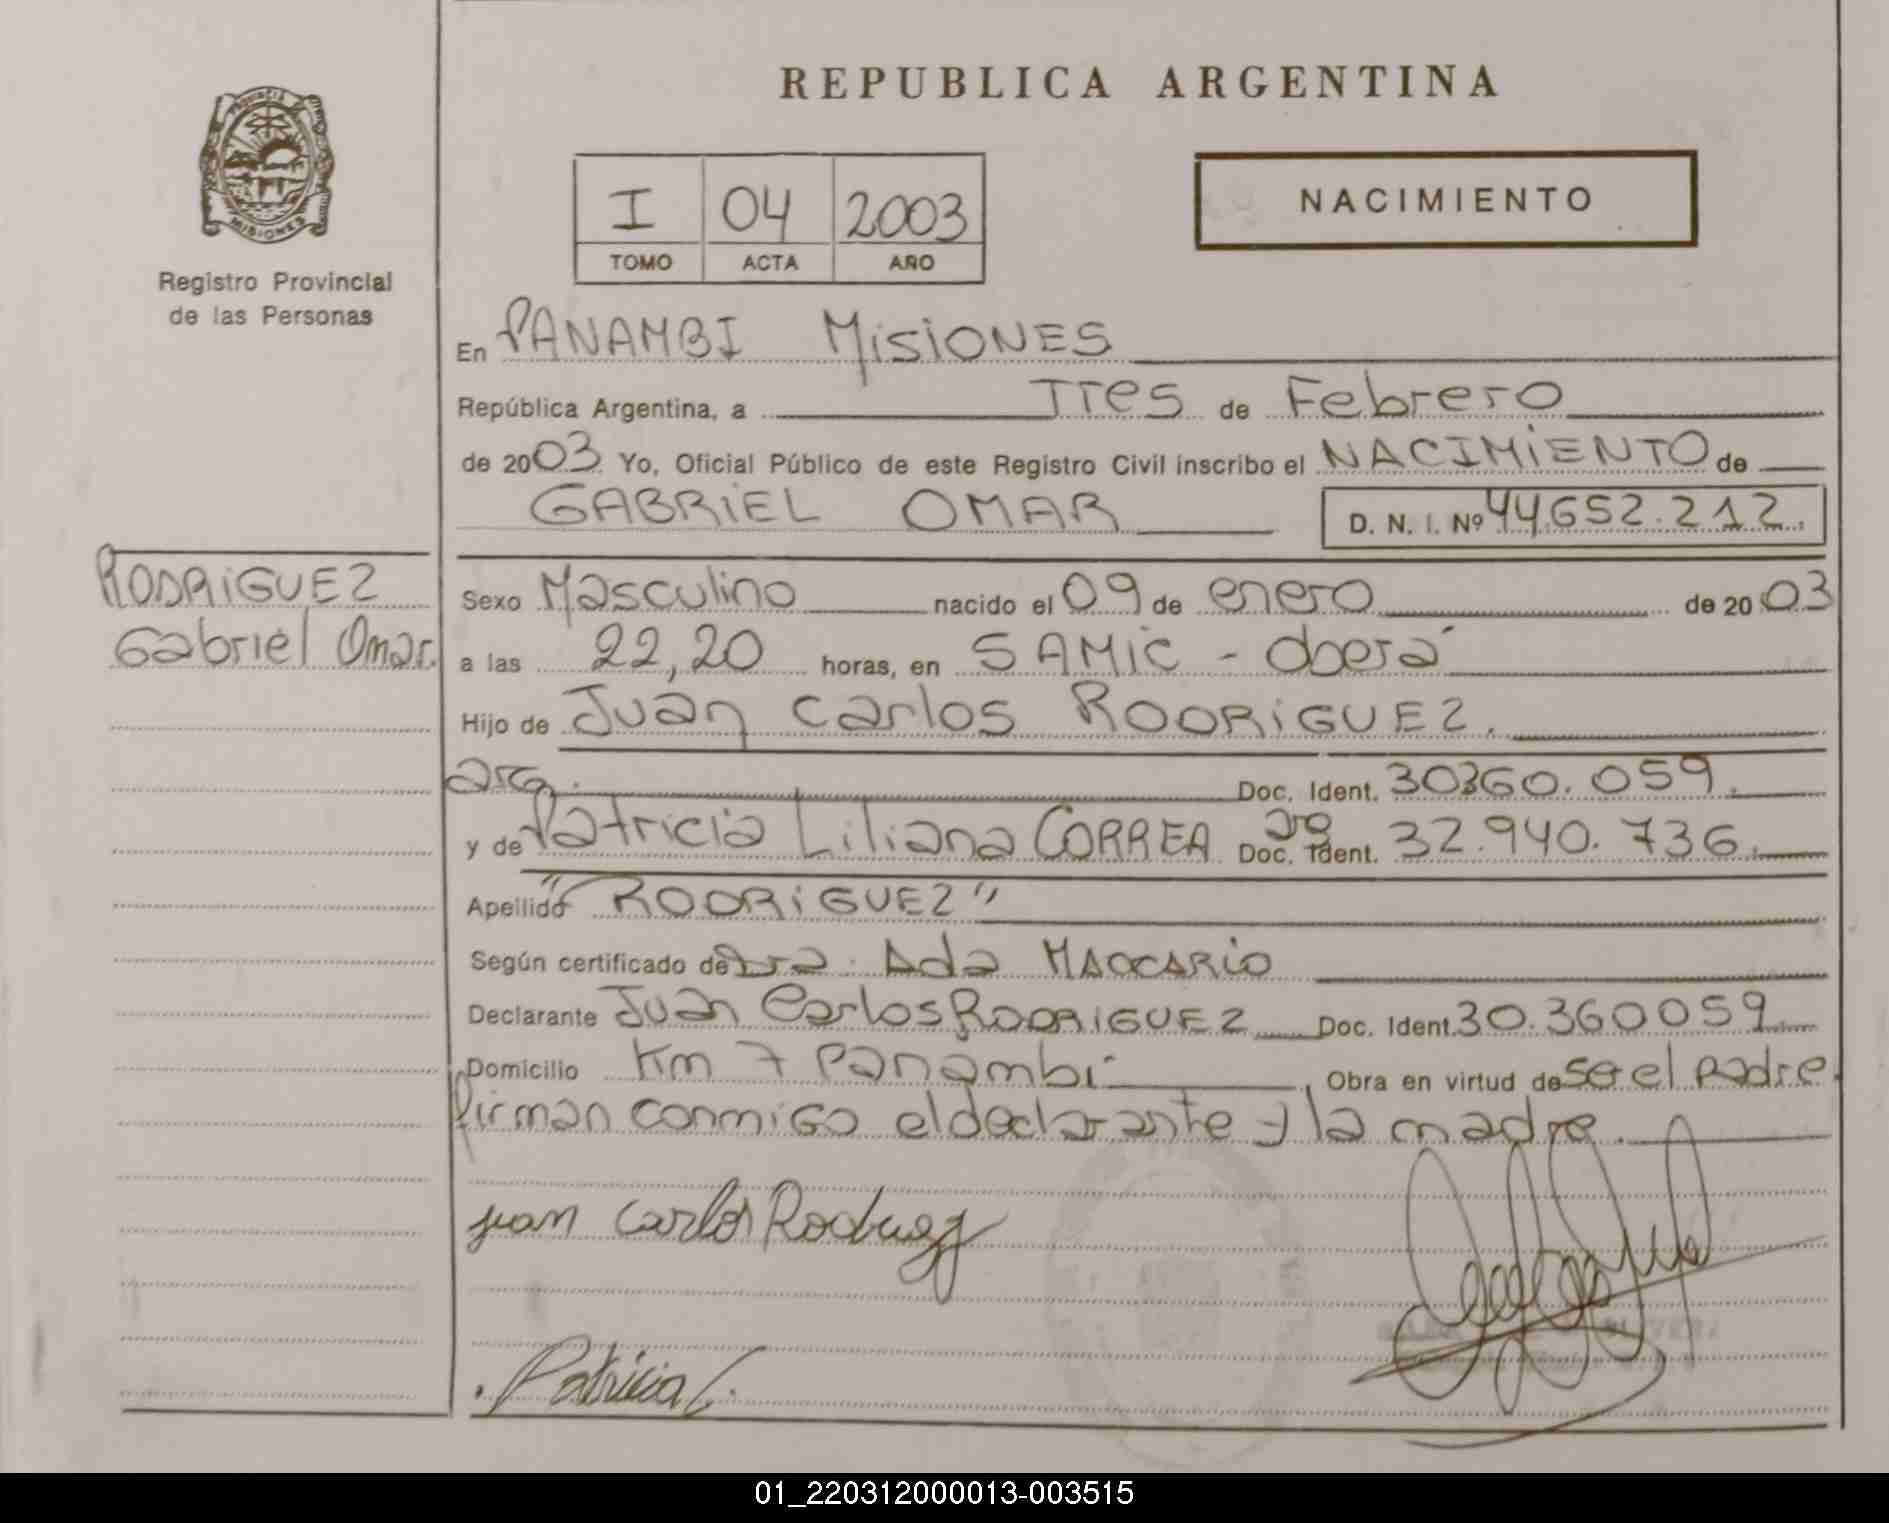 REPUBLICA ARGENTINA
PROVINCIA
MISIONES
Registro Provincial
de las Personas
I 04 2003
TOMO ACTA AÑO
NACIMIENTO
En PANAMBI MISIONES
República Argentina, a Tres de Febrero
de 2003 Yo, Oficial Público de este Registro Civil inscribo el NACIMIENTO de
GABRIEL OMAR D. N. I. Nº 44.652.212.
RODRIGUEZ
Gabriel Omar.
Sexo Masculino nacido el 09 de enero de 20 03
a las 22,20 horas, en SAMIC - Oberá
Hijo de Juan Carlos RODRIGUEZ.
arg. Doc. Ident. 30360.059.
y de Patricia Liliana CORREA arg Doc. Ident. 32.940.736.
Apellido "RODRIGUEZ"
Según certificado de Dra. Ada MACCARIO
Declarante Juan Carlos RODRIGUEZ Doc. Ident. 30.360059
Domicilio Km 7 Panambi, Obra en virtud de ser el padre.
firman conmigo el declarante y la madre.
Juan Carlos Rodriguez
Patricia C.
01_220312000013-003515